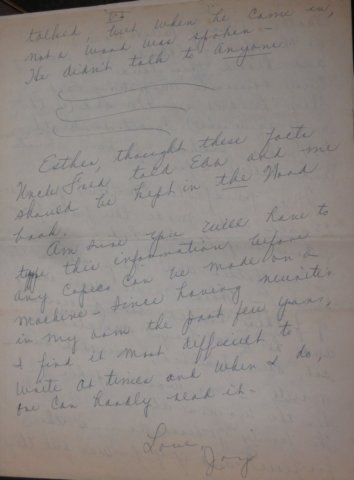 talked, but when he came in,
not a word was spoken —
He didn't talk to anyone
Esther, thought these facts
Uncle Fred told Edw and me
should be kept in the Wood
book.
Am sure you will have to
type this information before
any copies can be made on a
machine — since having neuritis
in my arm the past few years,
I find it most difficult to
write at times and when I do,
one can hardly read it —
Love,
Joy